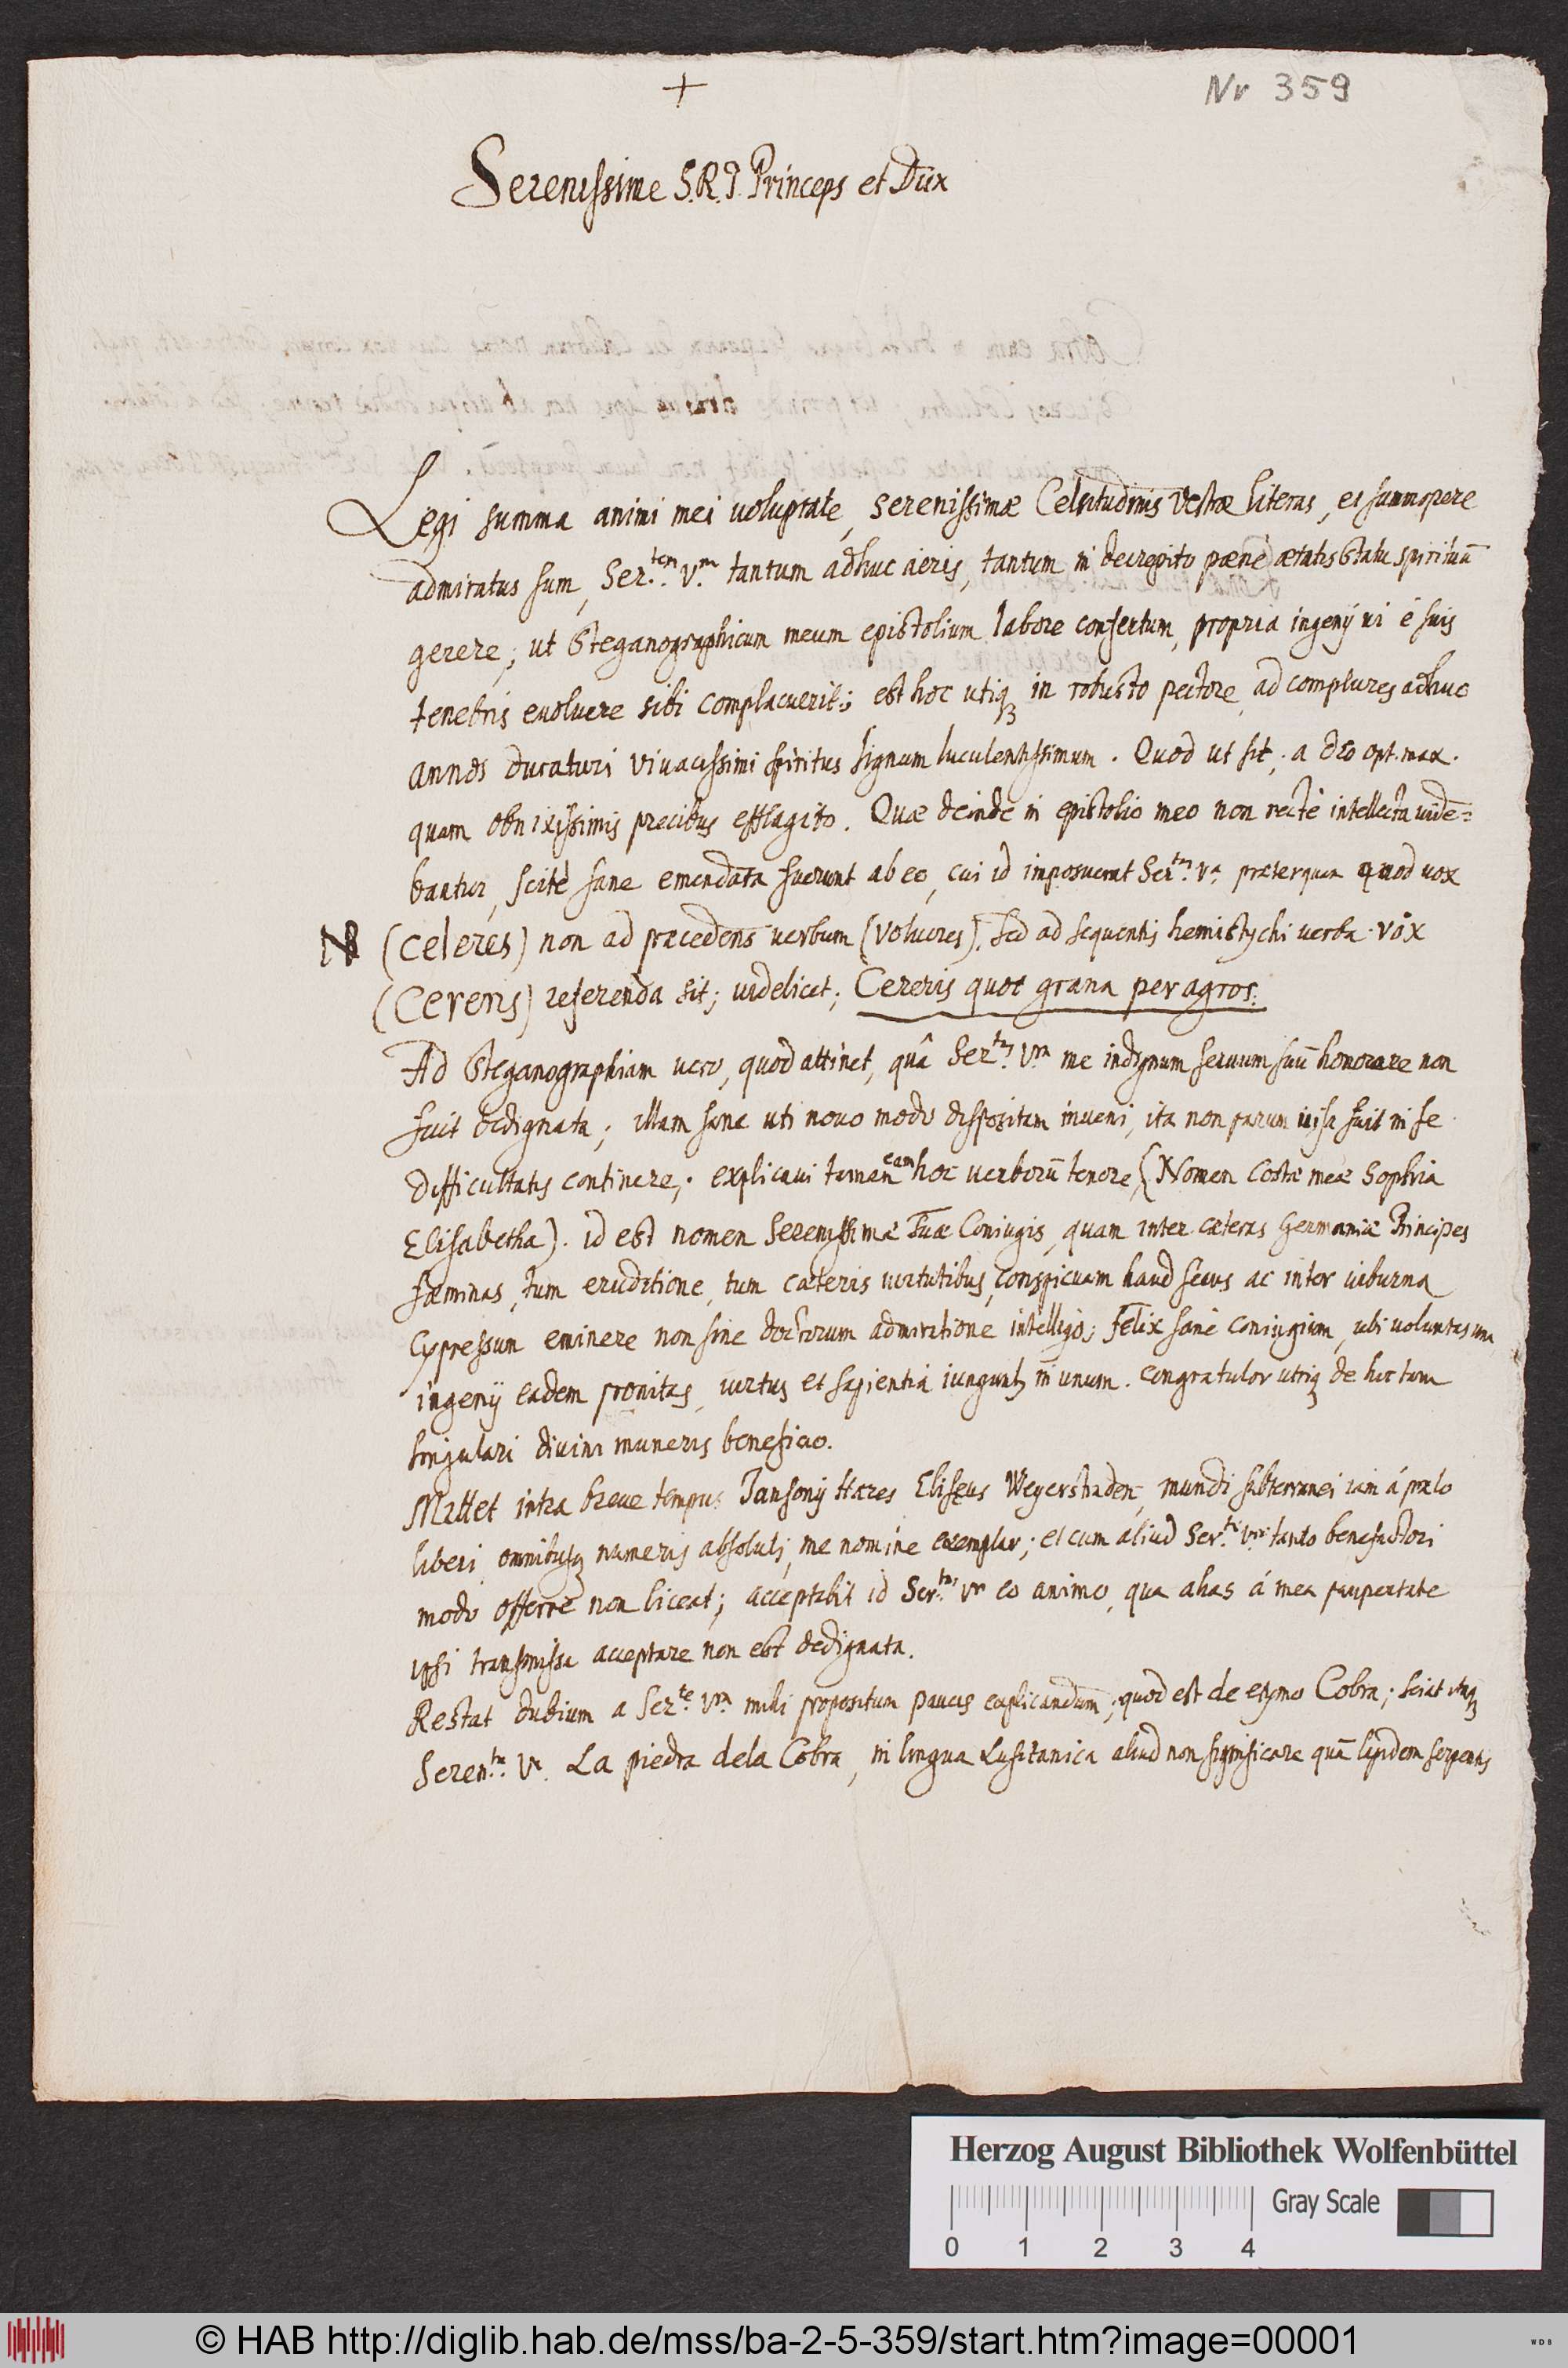 +
Nr 359
Serenissime S.R.I. Princeps et Dux
Legi summa animi mei voluptate, serenissimæ Celsitudinis Vestræ literas, et summopere
admiratus sum, Ser.tem V.m tantum adhuc aëris, tantum in decrepito pæne ætatis statu spirituū
gerere; ut Steganographicum meum epistolium labore confertum, propria ingenij ui è suis
tenebris euoluere sibi complacuerit; est hoc utiqꝫ in robusto pectore, ad complures adhuc
annos duraturi viuacissimi spiritus signum luculentissimum. Quod ut sit, a deo opt. max.
quam obnixissimis precibus efflagito. Quæ deinde in epistolio meo non rectè intellecta uide=
bantur, scitè sane emendata fuerunt ab eo, cui id imposuerat Ser.tas V.a præterquam quod uox
NB (Celeres) non ad præcedens uerbum (Volucres), sed ad sequentis hemistychi uerba vox
(Cereris) referenda sit; uidelicet; Cereris quot grana per agros.
Ad Steganographiam uero, quod attinet, quâ Ser.tas Vra me indignum seruum suū honorare non
fuit dedignata; illam sane uti nouo modo dispositam inueni, ita non parum uisa fuit in se
difficultatis continere; explicaui tamen eam hoc uerborū tenore, (Nomen Costæ meæ Sophia
Elisabetha). id est nomen Serenissimæ Tuæ Coniugis, quam inter cæteras Germaniæ Principes
fæminas, tum eruditione, tum cæteris uirtutibus, conspicuam haud secus ac inter uiburna
Cypressum eminere non sine doctorum admiratione intelligo; Felix sanè coniugium, ubi uoluntas una
ingenij eadem pronitas, uirtus et sapientia iungunt in unum. congratulor utriqꝫ de hoc tam
singulari diuini muneris beneficio.
Mittet intra breue tempus Jansonij Hæres Eliseus Weyerstraden, mundi subterranei iam á prælo
liberi omnibusqꝫ numeris absoluti, meo nomine exemplar; et cum aliud Ser.ti Vræ tanto benefactori
modo offerre non liceat; acceptabit id Ser.tas Vra eo animo, quo alias á mea paupertate
ipsi transmissa acceptare non est dedignata.
Restat dubium a Ser.te Vra mihi propositum paucis explicandum; quod est de etymo Cobra; sciat itaqꝫ
Seren.tas Va. La piedra dela Cobra, in lingua Lusitanica aliud non significare quā lapidem serpentis
Herzog August Bibliothek Wolfenbüttel
Gray Scale
0 1 2 3 4
© HAB http://diglib.hab.de/mss/ba-2-5-359/start.htm?image=00001
WDB